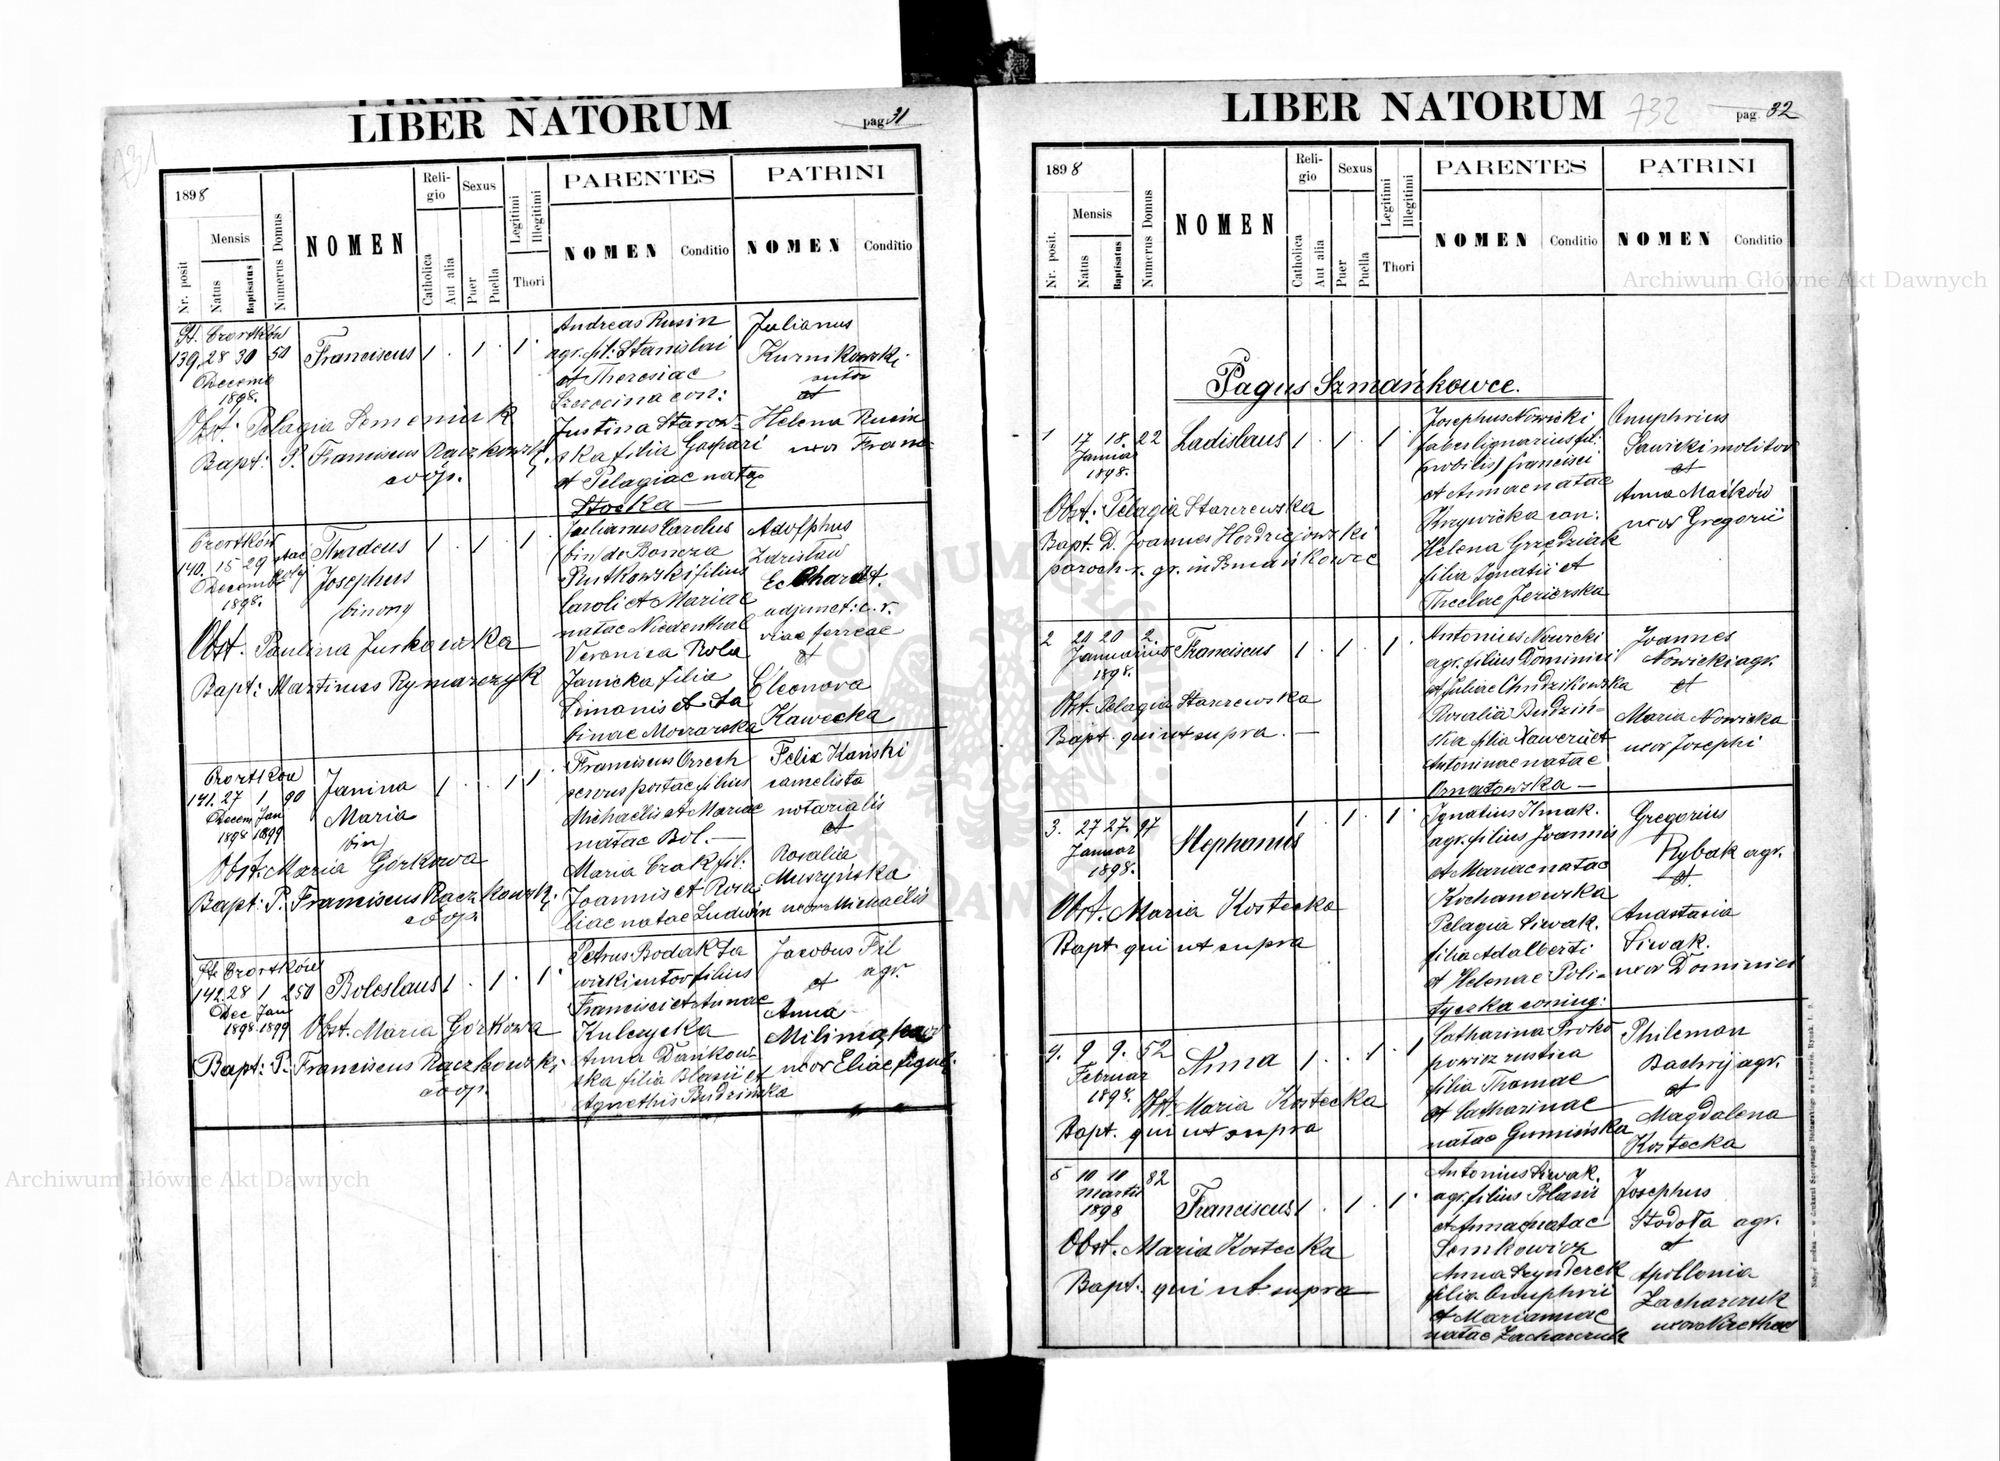 LIBER NATORUM
pag. 31
1898
Mensis
Nr. posit
Natus
Baptisatus
Numerus Domus
NOMEN
Reli-
gio
Catholica
Aut alia
Sexus
Puer
Puella
Legitimi
Illegitimi
Thori
PARENTES
NOMEN
Conditio
PATRINI
NOMEN
Conditio
St. Czortków
139. 28 30 50
Decemb
1898.
Franciscus 1 . 1 . 1 .
Obst: Pelagia Semeniuk
Bapt: P. Franciscus Raczkowski
coop.
Andreas Rusin
agr. fil: Stanislai
et Theresiae
con:
Justina Starow-
ska filia Gaspari
et Pelagiae natae
Stocka —
Julianus
Kurnikowski
sutor
et
Helena Rusin
uxor Franc-
Czortków
140. 15 29
Decemb
1898.
Thadeus
Josephus
binom
1 . 1 . 1 .
Obst. Paulina Jurkowska
Bapt: Martinus Rymarczyk
Julianus Carolus
bin de Boncza
Rutkowski filius
Caroli et Mariae
natae Niedenthal
Veronica Rola
Janicka filia
Simonis et Sa
binae Morawska
Adolphus
Zdzisław
Eckhardt.
adjunct: c. r.
viae ferreae
et
Eleonora
Kawecka
Czortków
141. 27 1 90
Decem Jan
1898 1899
Janina
Maria
bin
1 . . 1 1 .
Obst. Maria Górkowa
Bapt: P. Franciscus Raczkowski
coop
Franciscus Orzech
servus postae filius
Michaelis et Mariae
natae Bol. —
Maria Czak fil:
Joannis et Rosa
liae natae Ludwin
Felix Kański
camelista
notarialis
et
Rosalia
Muszyńska
uxor Michaelis
St. Czortków
142. 28 1 250
Dec Jan
1898 1899
Boleslaus 1 . 1 . 1 .
Obst. Maria Górkowa
Bapt: P. Franciscus Raczkowski
coop.
Petrus Bodak Sa
wicki sutor filius
Francisci et Annae
Kulczycka
Anna Dańkow-
ska filia Blasii et
Agnethis Budzińska
Jacobus Fil
agr.
et
Anna
uxor Eliae
LIBER NATORUM
732
pag. 32
1898
Mensis
Nr. posit.
Natus
Baptisatus
Numerus Domus
NOMEN
Reli-
gio
Catholica
Aut alia
Sexus
Puer
Puella
Legitimi
Illegitimi
Thori
PARENTES
NOMEN
Conditio
PATRINI
NOMEN
Conditio
Pagus Szmańkowce.
1 17 18. 22
Januar
1898.
Ladislaus 1 . 1 . 1 .
Obst: Pelagia Starzewska
Bapt. D. Joannes Hordziejowski
paroch. r. gr. in Szmańkowce
Josephus Nowicki
faber lignarius fil:
(nobilis) Francisci
et Annae natae
Krzywicka con:
Helena Grzędziak
filia Ignatii et
Theclae Jezierska
Onuphrius
Sawicki molitor
et
Anna Maćków
uxor Gregorii
2 20 20 2.
Januarius
1898.
Franciscus 1 . 1 . 1 .
Obst. Pelagia Starzewska
Bapt. qui ut supra. —
Antonius Nowicki
agr. filius Dominici
et Juliae Chudzikowska
Rosalia Budzin-
ska filia Xawerii et
Antoninae natae
Ornatowska —
Joannes
Nowicki agr.
et
Maria Nowicka
uxor Josephi
3. 27 27. 97
Januar
1898.
Stephanus 1 . 1 . 1 .
Obst. Maria Kostecka
Bapt qui ut supra
Ignatius
agr. filius Joannis
et Mariae natae
Kochanowska
Pelagia Siwak.
filia Adalberti
et Helenae Poli-
tycka coniug:
Gregorius
Rybak agr.
et.
Anastasia
Siwak.
uxor Dominici
4. 9 9. 52
Februar
1898.
Anna 1 . . 1 . 1
Obst. Maria Kostecka
Bapt. qui ut supra
Catharina Proko
powicz rustica
filia Thomae
et Catharinae
natae Gumińska
Philemon
Bachryj agr.
et
Magdalena
Kostecka
5 10 10 82
Martii
1898
Franciscus 1 . 1 . 1 .
Obst. Maria Kostecka
Bapt. qui ut supra
Antonius Siwak.
agr. filius Blasii
et Annae natae
Semkowicz
Anna Szynderek
filia Onuphrii
et Mariannae
natae Zacharczuk
Josephus
Stodoła agr.
et
Apollonia
Zacharczuk
uxor
Archiwum Główne Akt Dawnych
Archiwum Główne Akt Dawnych